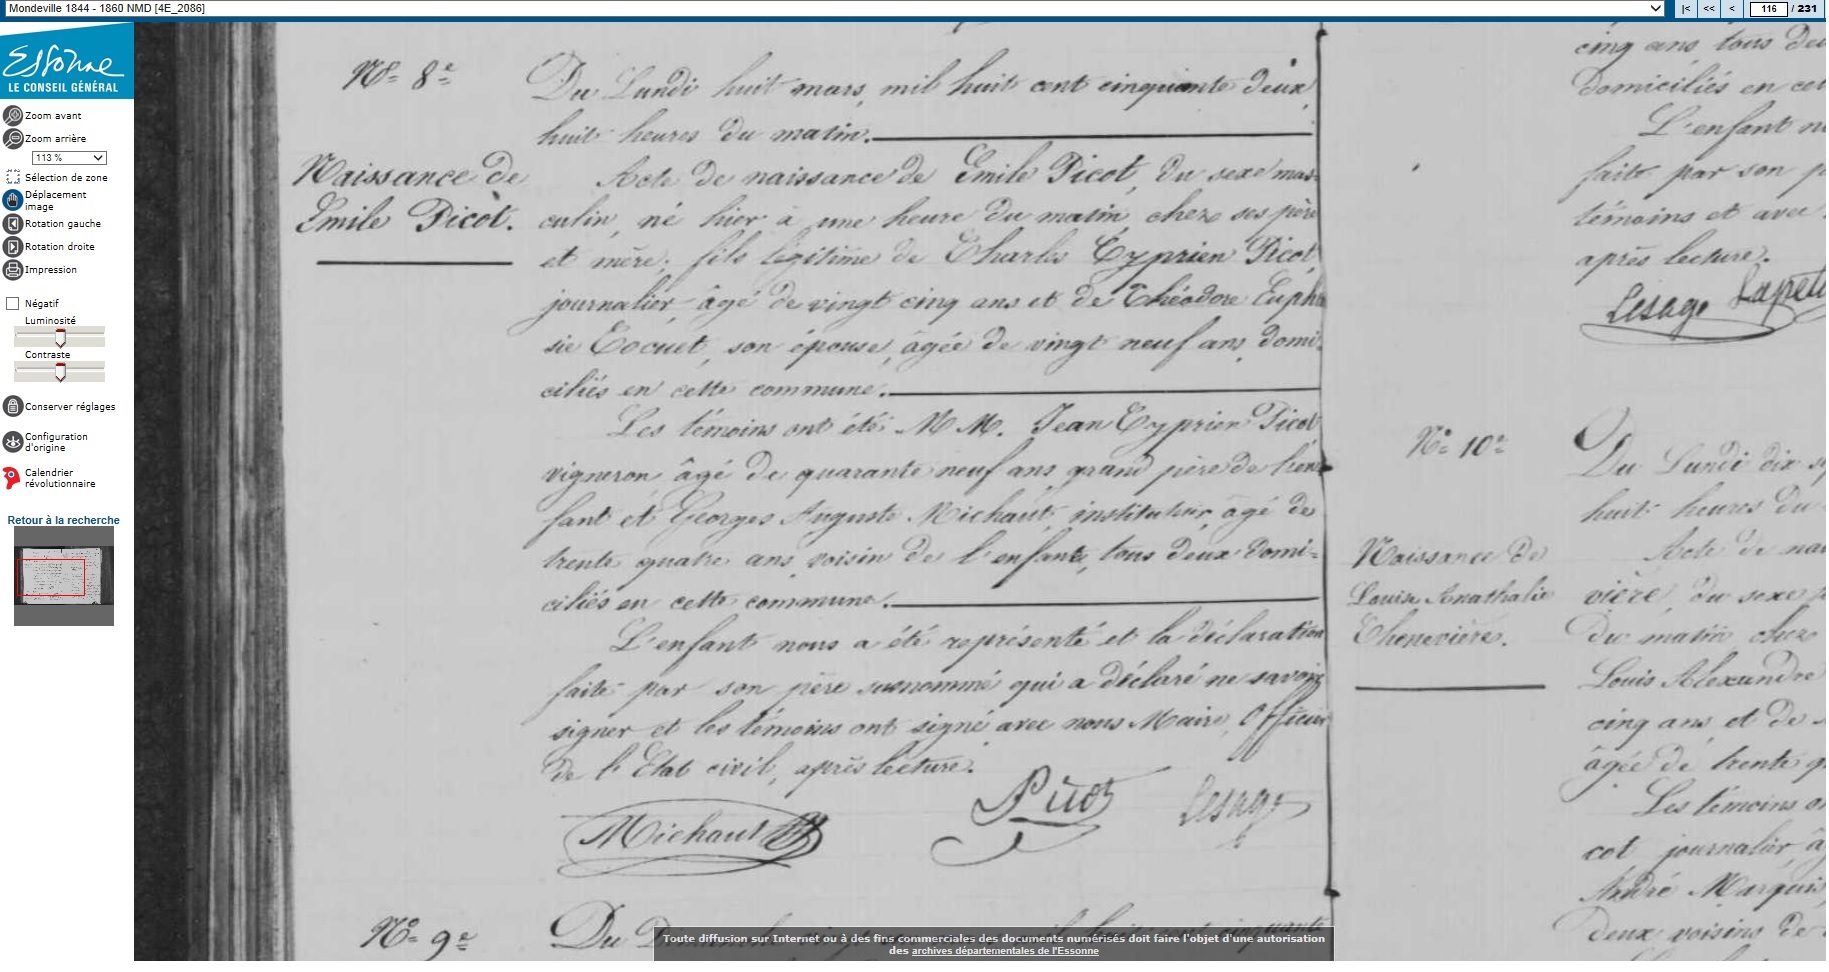 Mondeville 1844 - 1860 NMD [4E_2086]
|< << < 116 / 231
Essonne
LE CONSEIL GÉNÉRAL
Zoom avant
Zoom arrière
113 %
Sélection de zone
Déplacement
image
Rotation gauche
Rotation droite
Impression
Négatif
Luminosité
Contraste
Conserver réglages
Configuration
d'origine
Calendrier
révolutionnaire
Retour à la recherche
No 8e
Naissance de
Emile Picot.
Du Lundi huit mars, mil huit cent cinquante deux
huit heures du matin.
Acte de naissance de Emile Picot, du sexe mas-
culin, né hier à une heure du matin, chez ses père
et mère; fils légitime de Charles Cyprien Picot
journalier, âgé de vingt cinq ans et de Théodore Euphra
sie Cocuet, son épouse, âgée de vingt neuf ans, domi-
ciliés en cette commune.
Les témoins ont été MM. Jean Cyprien Picot
vigneron âgé de quarante neuf ans, grand père de l'en-
fant et Georges Auguste Michaut, instituteur, âgé de
trente quatre ans, voisin de l'enfant, tous deux domi-
ciliés en cette commune.
L'enfant nous a été représenté et la déclaration
faite par son père susnommé qui a déclaré ne savoir
signer et les témoins ont signé avec nous Maire, Officier
de l'Etat civil, après lecture.
Michaut Picot Lesage
No 9e
Du
cinq ans tous deu
domiciliés en cet
L'enfant n
faite par son p
témoins et avec
après lecture.
Lesage Lapeti
No 10e
Naissance de
Louise Anathalie
Chenevière.
Du Lundi dix s
huit heures du
Acte de nai
vière, du sexe f
du matin chez
Louis Alexandre
cinq ans, et de
âgée de trente q
Les témoins o
cot journalier, â
André Marquis
deux voisins de
Toute diffusion sur Internet ou à des fins commerciales des documents numérisés doit faire l'objet d'une autorisation
des archives départementales de l'Essonne